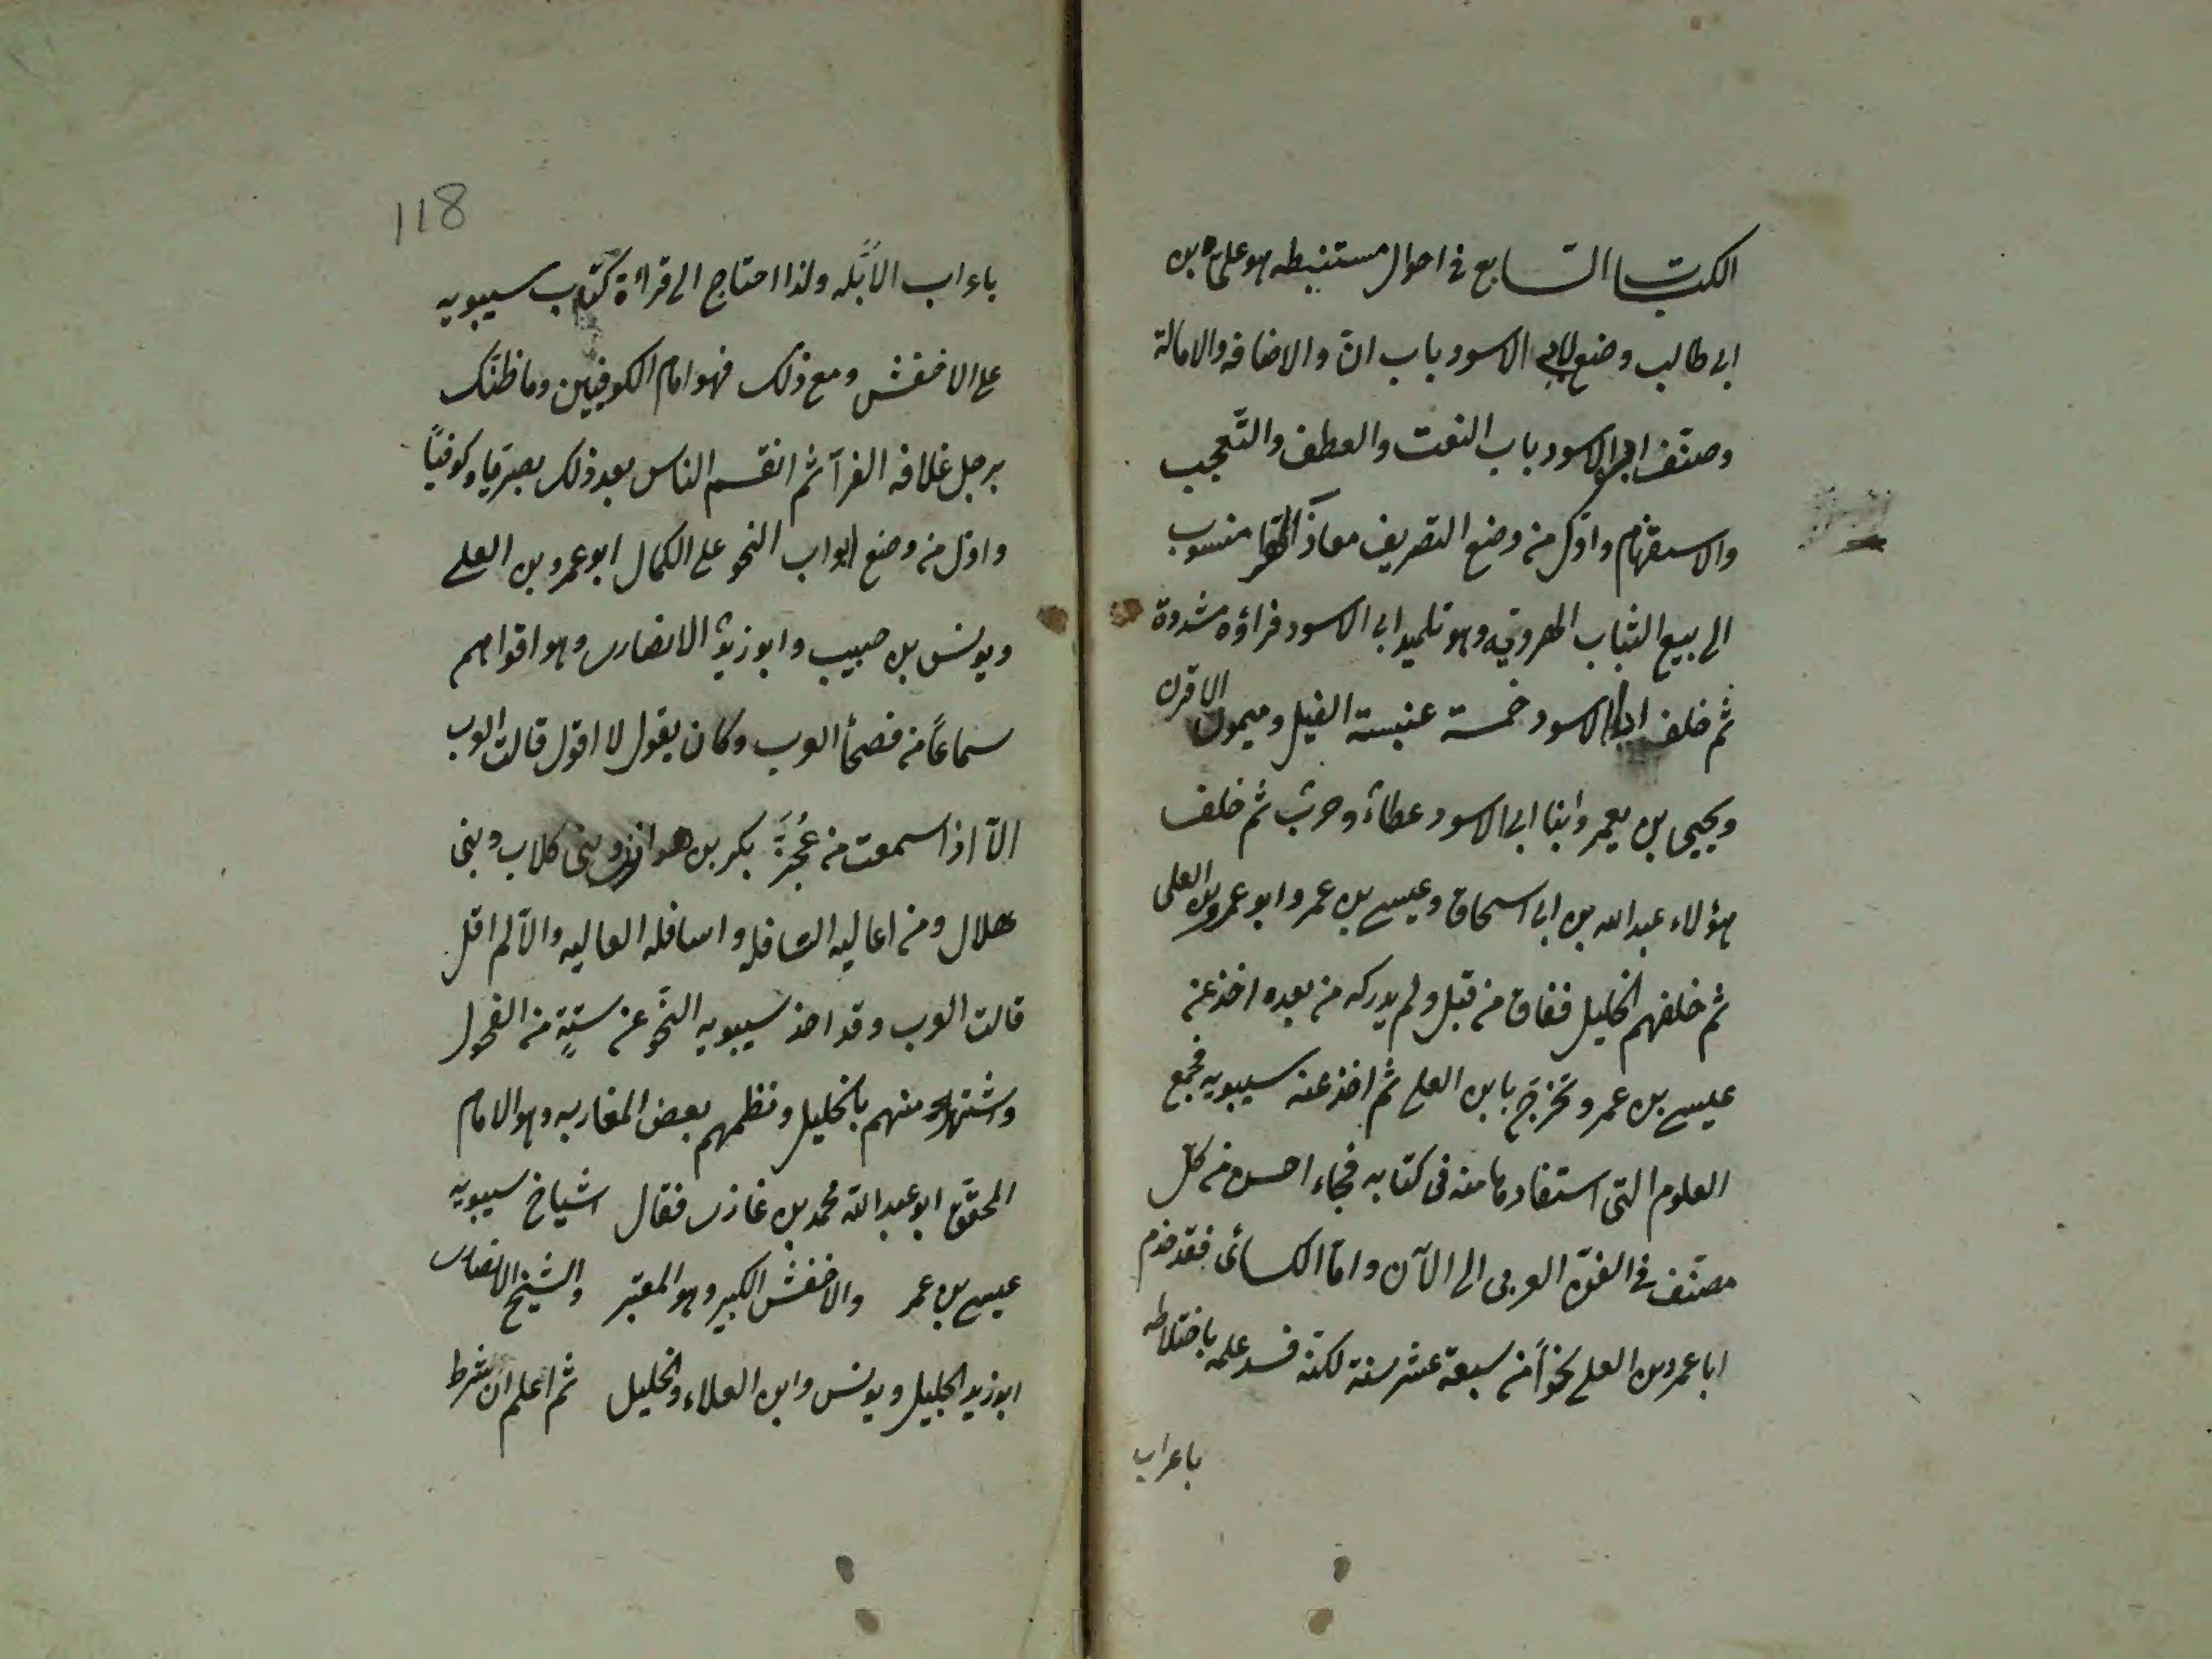 الكتاب السابع في احوال مستنبطه هو علي بن
ابي طالب وضع لابي الاسود باب ان والاضافه والامالة
وصنف ابو الاسود باب النعت والعطف والتعجب
والاستفهام واول من وضع التصريف معاذ الهرا منسوب
الى بيع الثياب الهرويه وهو تلميذ ابي الاسود فراؤه مشددة
ثم خلف ابا الاسود خمسة عنبسة الفيل وميمون الاقرن
ويحيى بن يعمر وابنا ابي الاسود عطاء وحرب ثم خلف
هؤلاء عبدالله بن ابي اسحاق وعيسى بن عمر وابو عمرو بن العلى
ثم خلفهم الخليل ففاق من قبل ولم يدركه من بعده اخذ عن
عيسى بن عمر وتخرّج بابن العلى ثم اخذ عنه سيبويه فجمع
العلوم التي استفادها منه في كتابه فجاء احسن من كل
مصنّف في الفنّ العربي الى الآن وامّا الكسائي فقد خدم
ابا عمرو بن العلى نحواً من سبعة عشر سنة لكنه فسد علمه باختلاطه
باعراب
118
باعراب الابّله ولذا احتاج الى قراءة كتاب سيبويه
على الاخفش ومع ذلك فهو امام الكوفيين وما ظنك
برجل غلامه الفرآ ثم انقسم الناس بعد ذلك بصريّا وكوفيّاً
واول من وضع ابواب النحو على الكمال ابوعمرو بن العلى
ويونس بن حبيب وابو زيد الانصارى وهو اقواهم
سماعاً من فصحأ العرب وكان يقول لا اقول قالت العرب
الّا اذا سمعت من عُجزَة بكر بن هوازن وبني كلاب وبني
هلال ومن اعاليه السافله واسافله العاليه والّا لم اقل
قالت العرب وقد اخذ سيبويه النّحو عن ستّةٍ من الفحول
واشتهر منهم بالخليل ونظمهم بعض المغاربه وهو الامام
المحقق ابو عبدالله محمد بن غازى فقال اشياخ سيبويه
عيسى بن عمر والاخفش الكبير وهو المعتبر والشيخ الانصارى
ابو زيد الجليل ويونس وابن العلاء والخليل ثم اعلم ان شرط